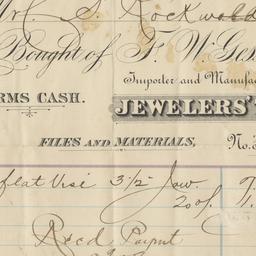 S. Rockwold
Bought of F. W. Ges
Importer and Manufac
RMS CASH.
JEWELERS'
FILES AND MATERIALS,
No.
flat Vise 3 1/2 Jaw
20%
Recd Paymt